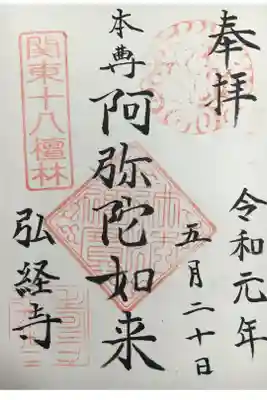 奉拝
令和元年
五月二十日
本尊
阿弥陀如来
関東十八檀林
弘経寺